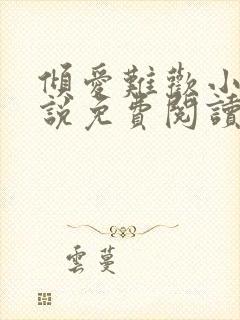 傾愛難歡小
說免費閱讀
雲蔓